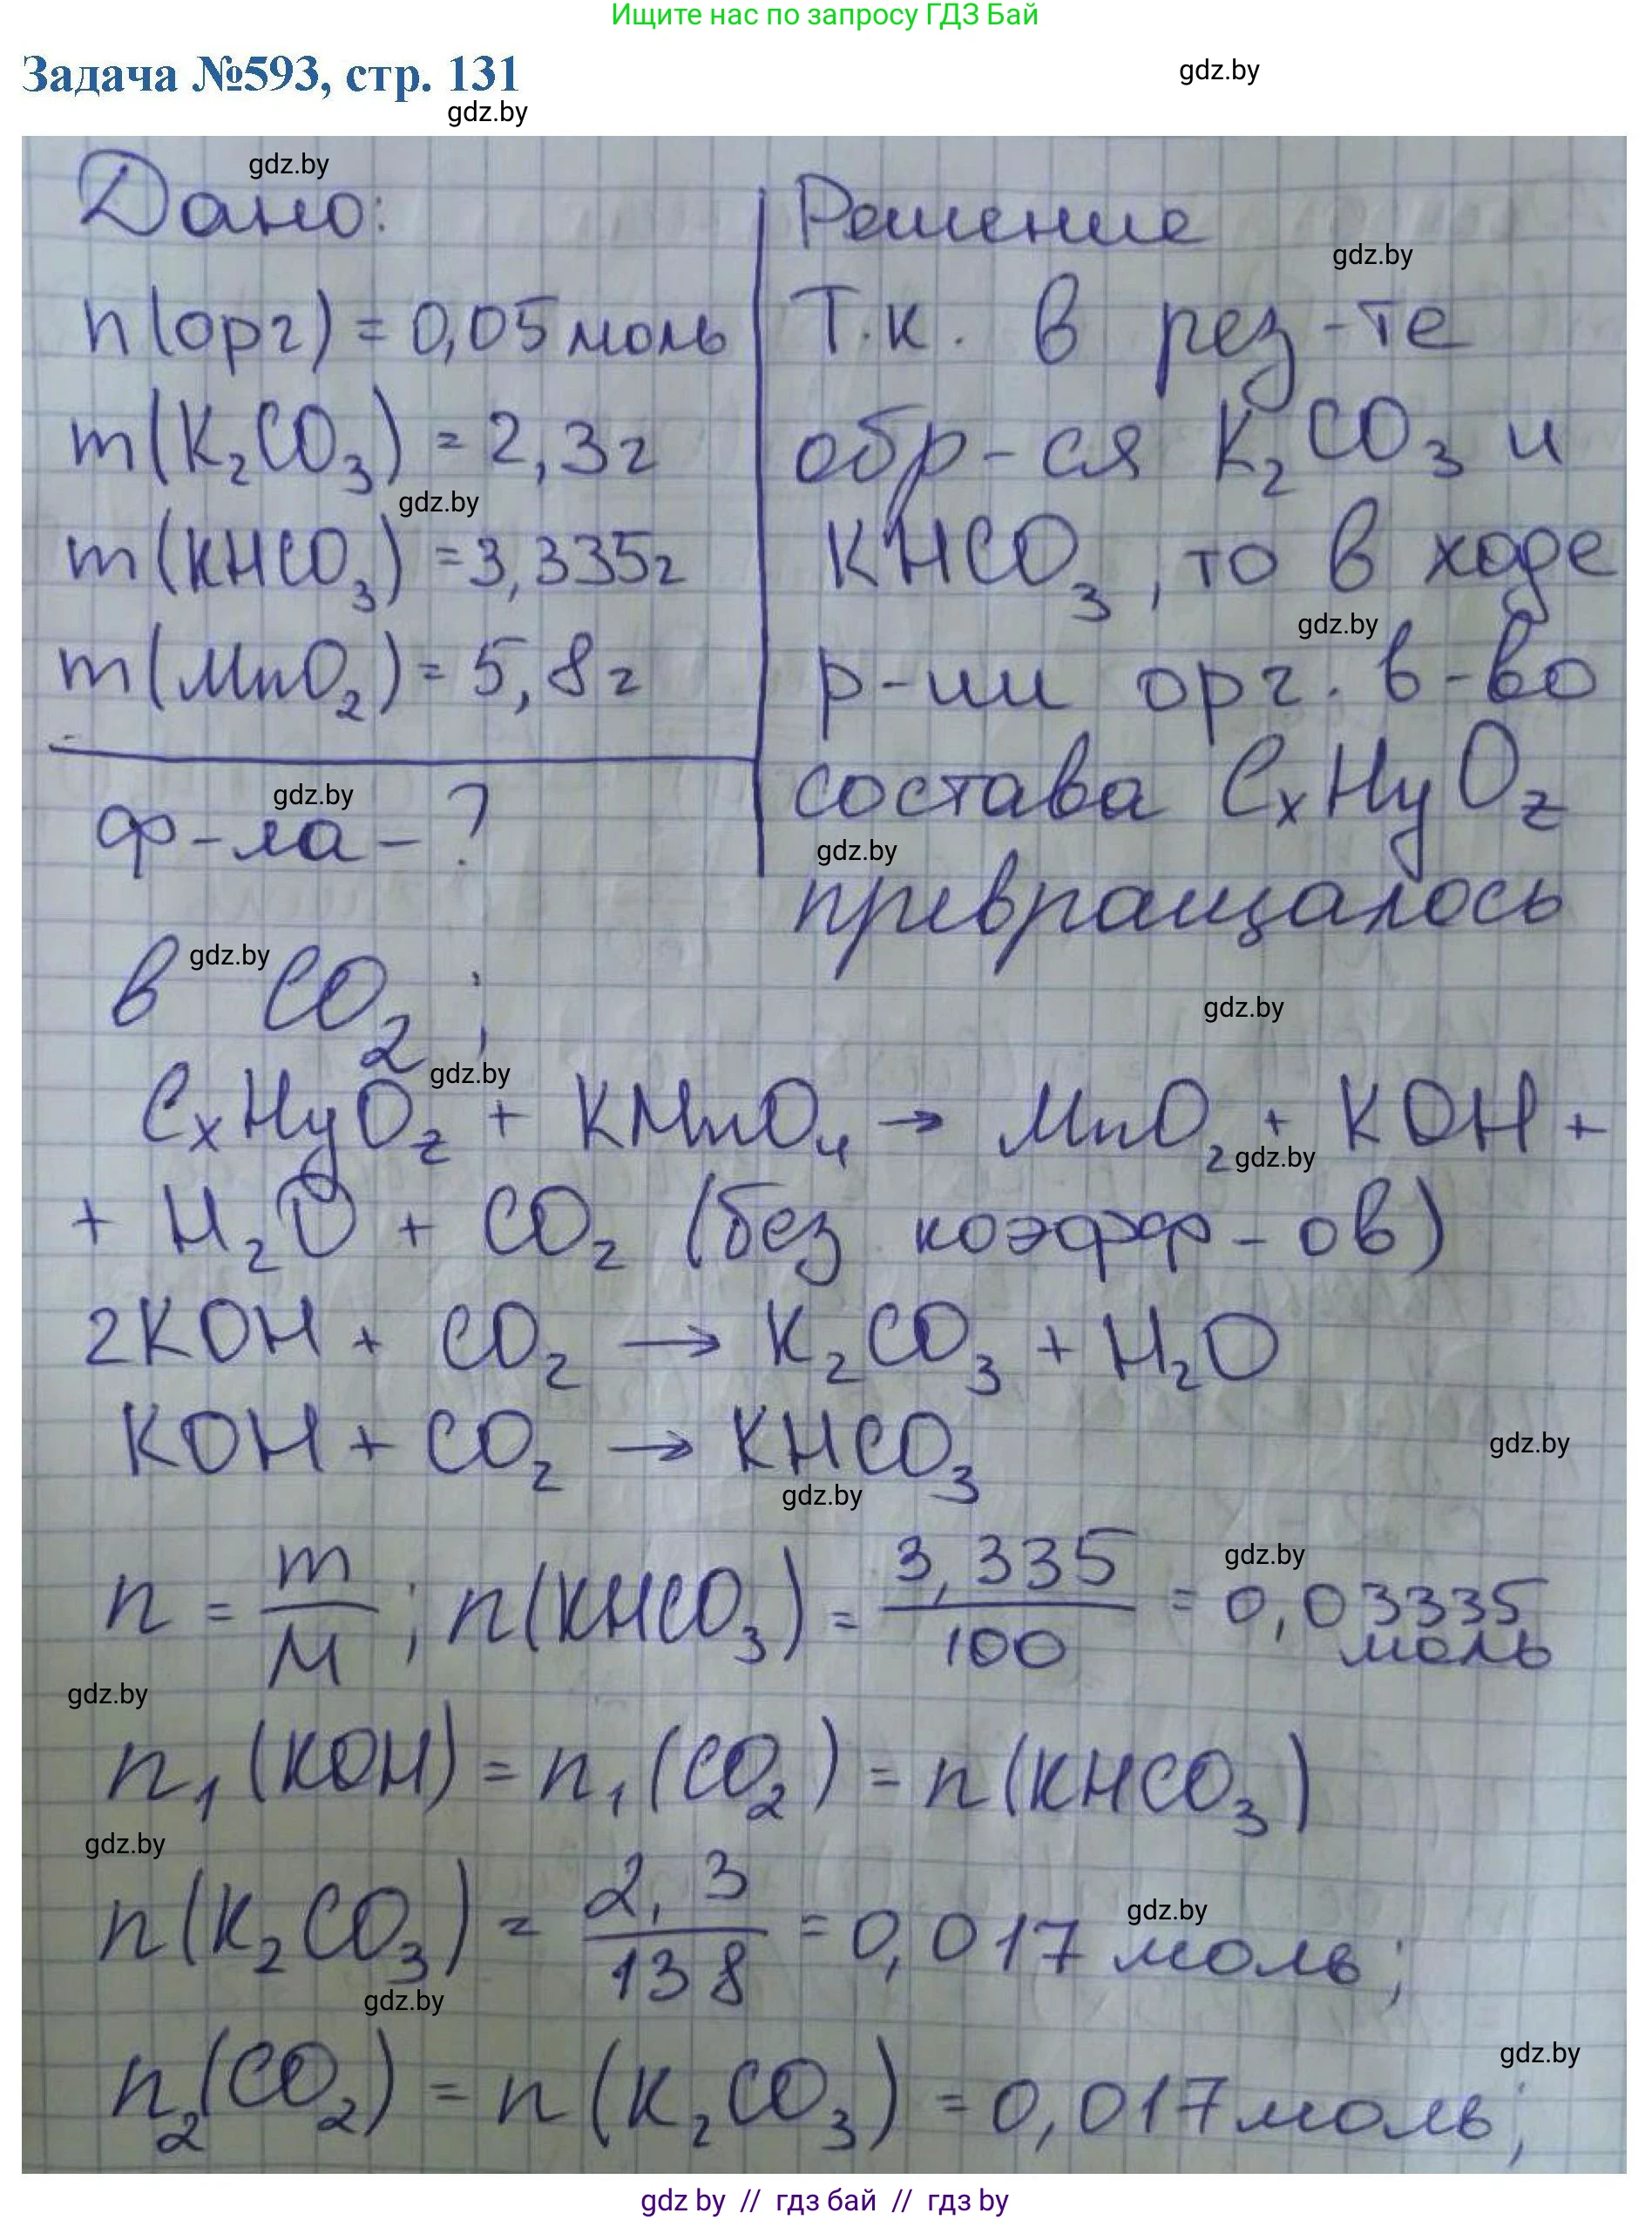 Ищите нас по запросу ГДЗ Бай
Задача №593, стр. 131
gdz.by
gdz.by
gdz.by
Дано:
n(орг) = 0,05 моль
m(K₂CO₃) = 2,3г
gdz.by
m(KHCO₃) = 3,335г
m(MnO₂) = 5,8г
gdz.by
ф-ла - ?
Решение
gdz.by
Т.к. в рез-те
обр-ся K₂CO₃ и
KHCO₃, то в ходе
gdz.by
р-ии орг. в-во
состава CₓHyOz
gdz.by
превращалось
gdz.by
в CO₂;
gdz.by
gdz.by
CₓHyOz + KMnO₄ → MnO₂ + KOH +
gdz.by
+ H₂O + CO₂ (без коэфф-ов)
2KOH + CO₂ → K₂CO₃ + H₂O
KOH + CO₂ → KHCO₃
gdz.by
gdz.by
gdz.by
n = m/M ; n(KHCO₃) = 3,335/100 = 0,03335 моль
gdz.by
n₁(KOH) = n₁(CO₂) = n(KHCO₃)
gdz.by
n(K₂CO₃) = 2,3/138 = 0,017 моль;
gdz.by
gdz.by
gdz.by
n₂(CO₂) = n(K₂CO₃) = 0,017 моль;
gdz by // гдз бай // гдз by